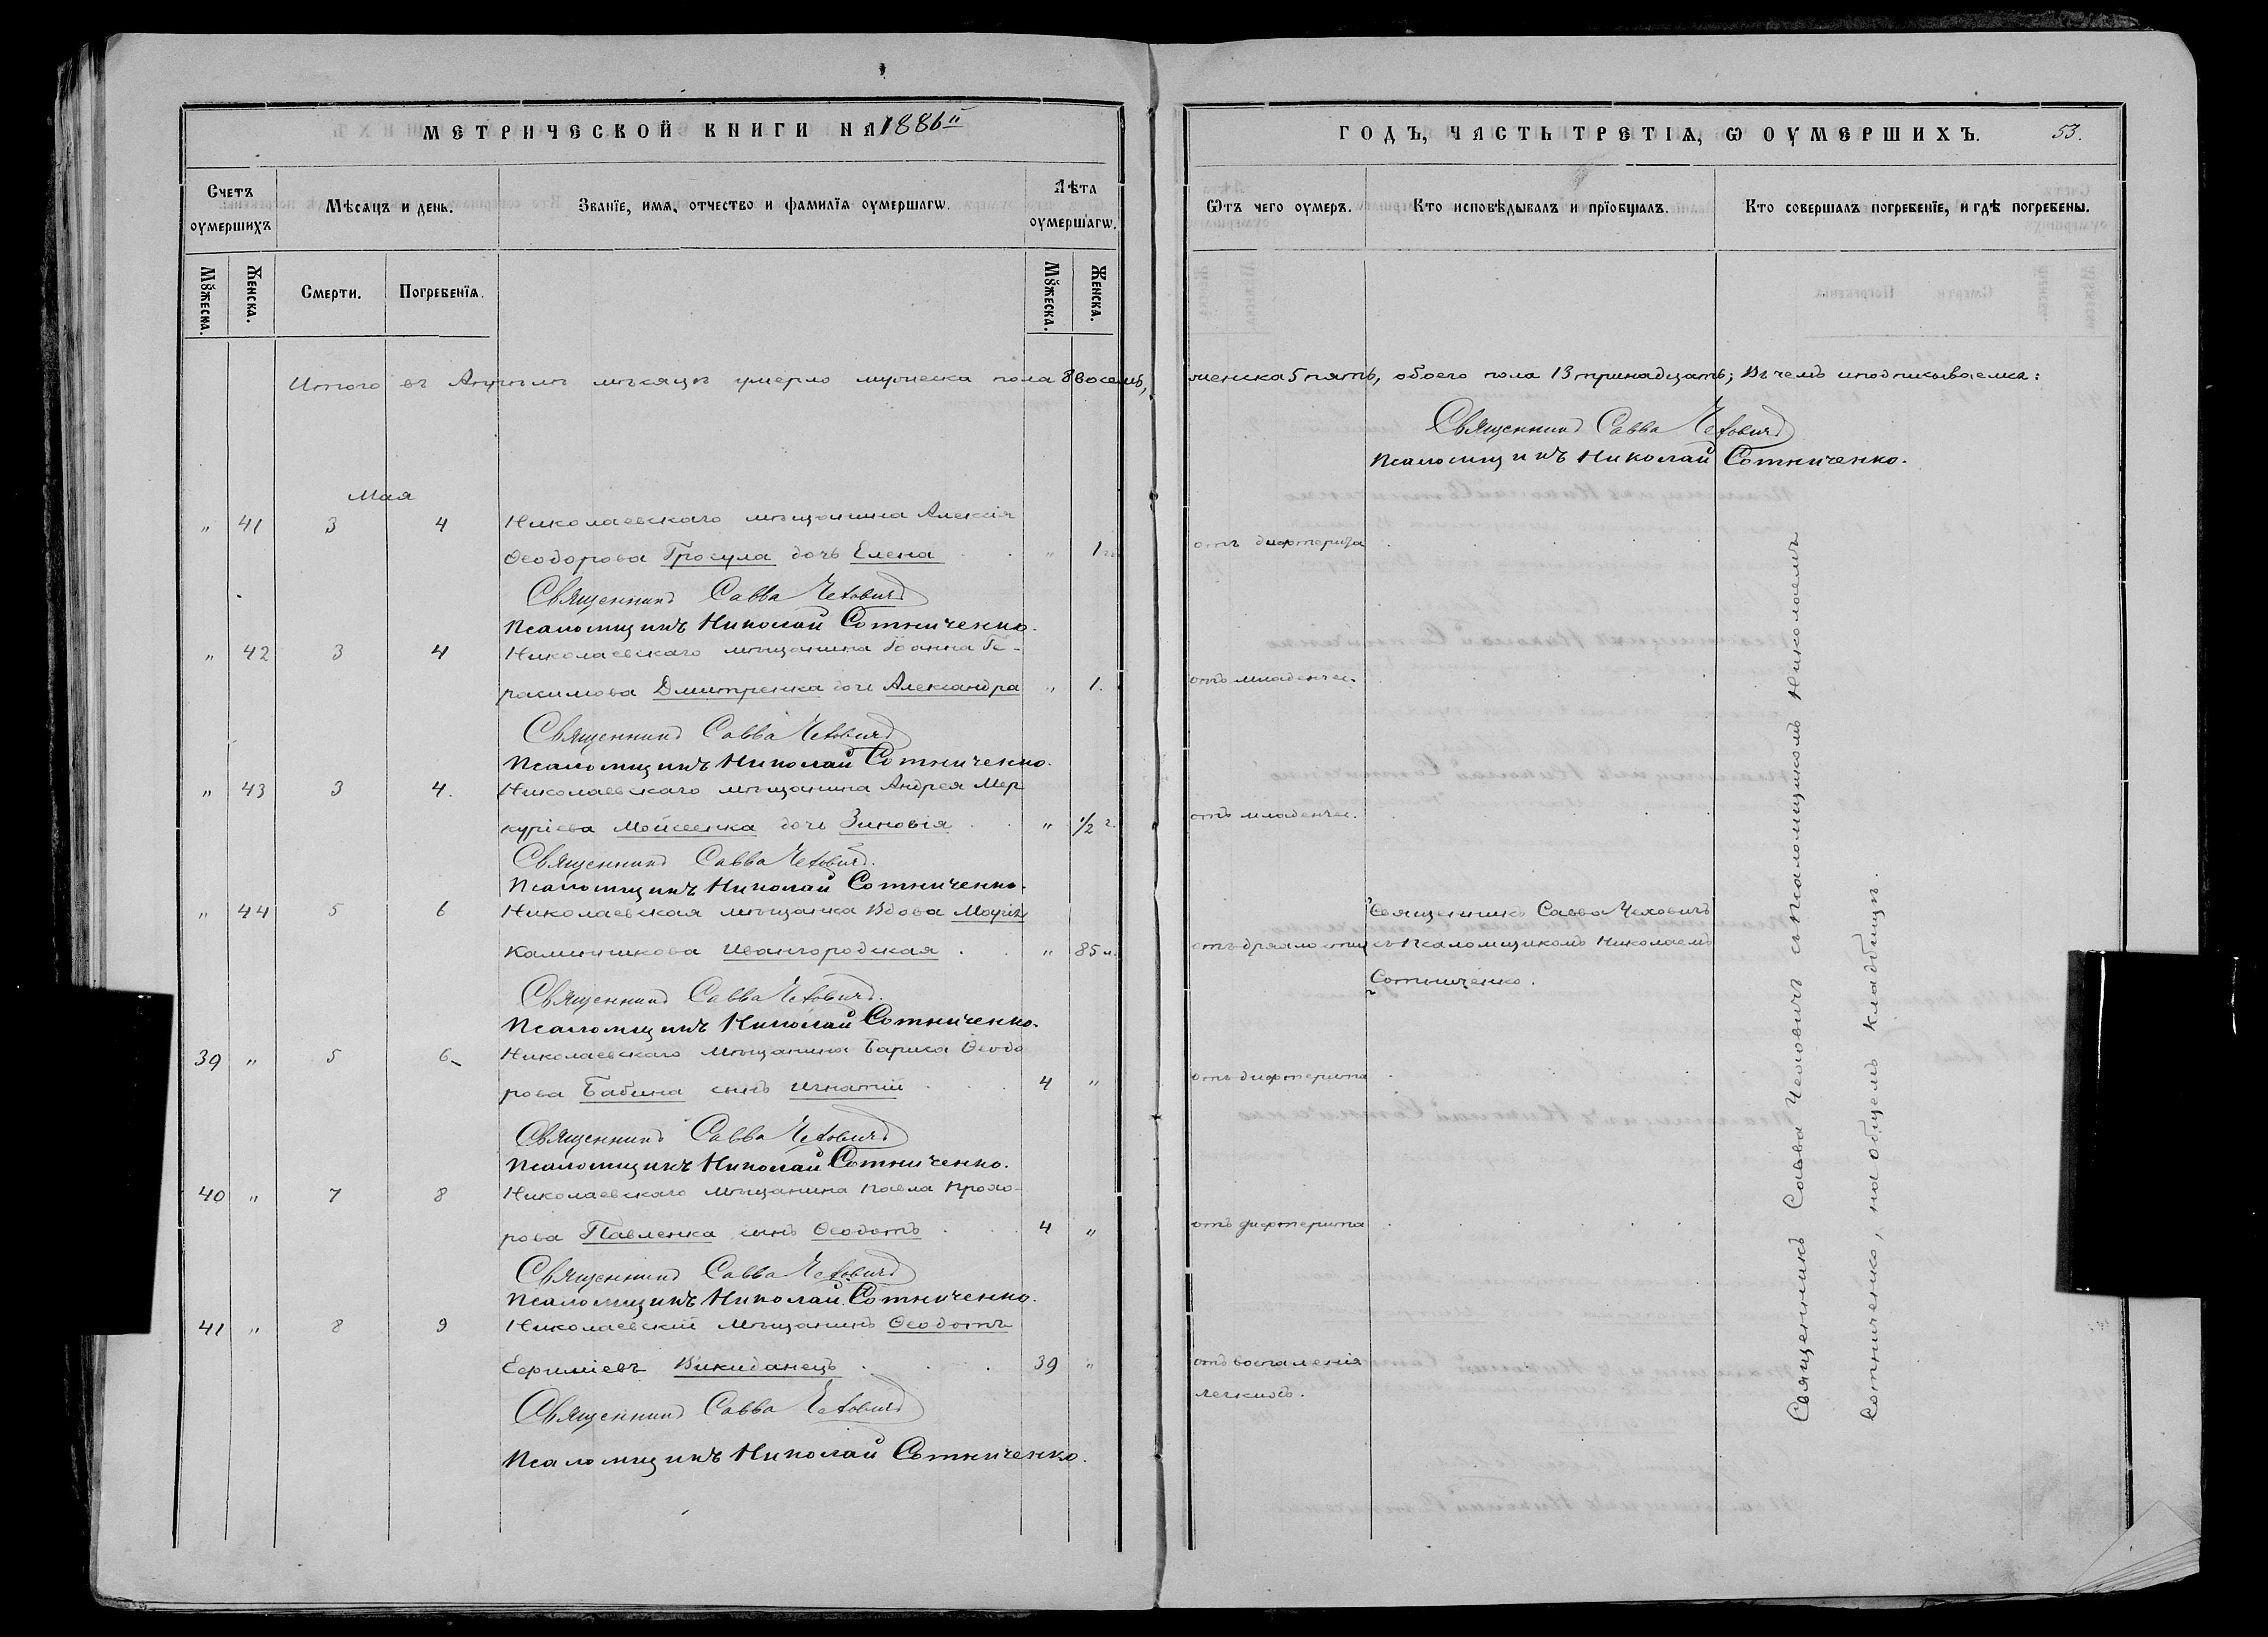 МЕТРИЧЕСКОЙ КНИГИ НА 1886й
ГОДЪ, ЧАСТЬ ТРЕТІѦ, Ѡ ОУМЕРШИХЪ. 53.
Счетъ оумершихъ
Мѣсяцъ и день.
Званїе, имѧ, отчество и фамилїѧ оумершагѡ.
Лѣта оумершагѡ.
Ѿтъ чего оумеръ.
Кто исповѣдывалъ и прїобщалъ.
Кто совершалъ погребенїе, и гдѣ погребены.
Мꙋжеска.
Женска.
Смерти.
Погребенїѧ.
Мꙋжеска.
Женска.
Итого въ Апрѣлѣ мѣсяцѣ умерло мужеска пола 8 восемь, женска 5 пять, обоего пола 13 тринадцать; Въ чемъ и подписываемся:
Священникъ Савва Чехович
Псаломщикъ Николай Сотниченко.
Мая
" 41 3 4 Николаевскаго мѣщанина Алексія
Ѳеодорова Гросула дочь Елена " 1 г. отъ дифтерита
Священникъ Савва Чехович
Псаломщикъ Николай Сотниченко.
" 42 3 4 Николаевскаго мѣщанина Іоанна Ге-
расимова Дмитренка дочь Александра " 1. отъ младенчес.
Священникъ Савва Чехович
Псаломщикъ Николай Сотниченко.
" 43 3 4. Николаевскаго мѣщанина Андрея Мер
куріева Мойсеенка дочь Зиновія " 1/2 г. отъ младенчес.
Священникъ Савва Чехович.
Псаломщикъ Николай Сотниченко.
" 44 5 6 Николаевская мѣщанка Вдова
Ивангородская " 85 л. отъ дряхлости
Священникъ Савва Чеховичъ
съ Псаломщикомъ Николаемъ
Сотниченко.
Священникъ Савва Чехович.
Псаломщикъ Николай Сотниченко.
39 " 5 6 Николаевскаго Мѣщанина Бориса Ѳеодо
рова Бабина сынъ Игнатій 4 " отъ дифтерита
Священникъ Савва Чехович
Псаломщикъ Николай Сотниченко.
40 " 7 8 Николаевскаго мѣщанина Павла Прохо-
рова Павленка сынъ Ѳеодотъ 4 " отъ дифтерита
Священникъ Савва Чехович
Псаломщикъ Николай Сотниченко.
41 " 8 9 Николаевскій Мѣщанинъ Ѳеодотъ
Евфиміевъ Викиданецъ 39 " отъ воспаленія
легкихъ.
Священникъ Савва Чехович
Псаломщикъ Николай Сотниченко.
Священникъ Савва Чеховичъ съ Псаломщикомъ Николаемъ
Сотниченко, на общемъ кладбищѣ.